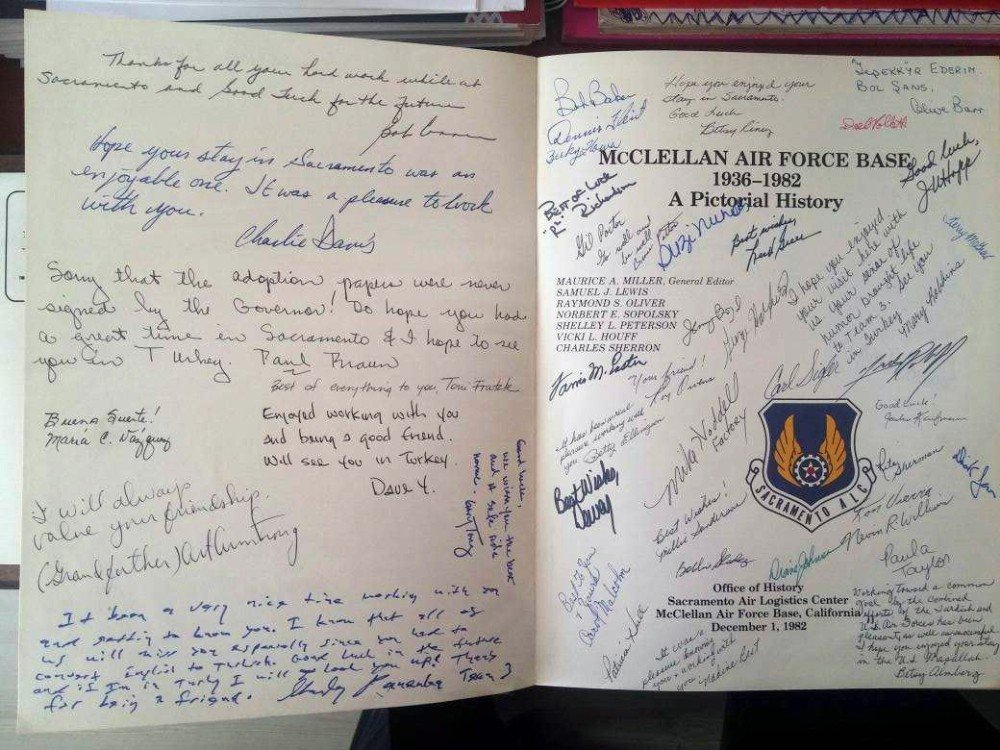 Thanks for all your hard work while at
Sacramento and Good Luck for the future
Bob
Hope your stay in Sacramento was an
enjoyable one. It was a pleasure to work
with you.
Charlie Davis
Sorry that the adoption papers were never
signed by the Governor! Do hope you had
a great time in Sacramento & I hope to see
you in Turkey. Paul Braun
Best of everything to you, Toni
Buena Suerte!
Maria C. Vazquez
Enjoyed working with you
and being a good friend.
Will see you in Turkey.
Dave Y.
Good luck,
we wish you the best
and a safe ride
home
I will always
value your friendship.
(Grandfather) Art Armstrong
It been a very nice time working with you
and getting to know you. I know that all of
us will miss you especially since you had to
convert English to Turkish. Good luck in the future
and if I'm in Turky I will look you up! Thanks
for being a friend. Team 3
Bob Baker
Dennis
Becky
Hope you enjoyed your
stay in Sacramento.
Good Luck
Betsy
TEŞEKKÜR EDERIM.
BOL ŞANS.
McCLELLAN AIR FORCE BASE
1936–1982
A Pictorial History
Good Luck,
J W Hoff
"BEST OF LUCK
Richardson
Gil Porter
Suzi Nunes
Best wishes
MAURICE A. MILLER, General Editor
SAMUEL J. LEWIS
RAYMOND S. OLIVER
NORBERT E. SOPOLSKY
SHELLEY L. PETERSON
VICKI L. HOUFF
CHARLES SHERRON
Jerry Boyd
I hope you enjoyed
your visit here with
us your sense of
humor brought life
to Team 3. See you
in Turkey
Mary Hopkins
Your friend!
Carl
Good Luck!
It has been a real
pleasure working with
you. Betty Ellington
Factory
Best Wishes,
Dewey
Best Wishes!
Millie Anderson
SACRAMENTO A L C
Rita Sherman
Tom Cherry
Nevin R. William
Diane Johnson
Paula
Taylor
Best to You
Carol Malcolm
Office of History
Sacramento Air Logistics Center
McClellan Air Force Base, California
December 1, 1982
It was a
pleasure
working with
you
Working toward a common
goal by the combined
efforts of the Turkish and
U.S. Air Forces has been
pleasant, as well as successful.
I hope you enjoyed your stay
in the U.S.
Betsy Amberg